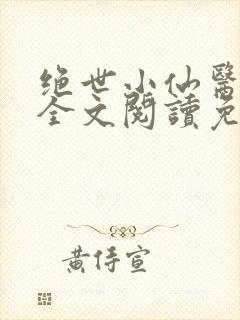 绝世小仙醫
全文閱讀免
黃侍宣